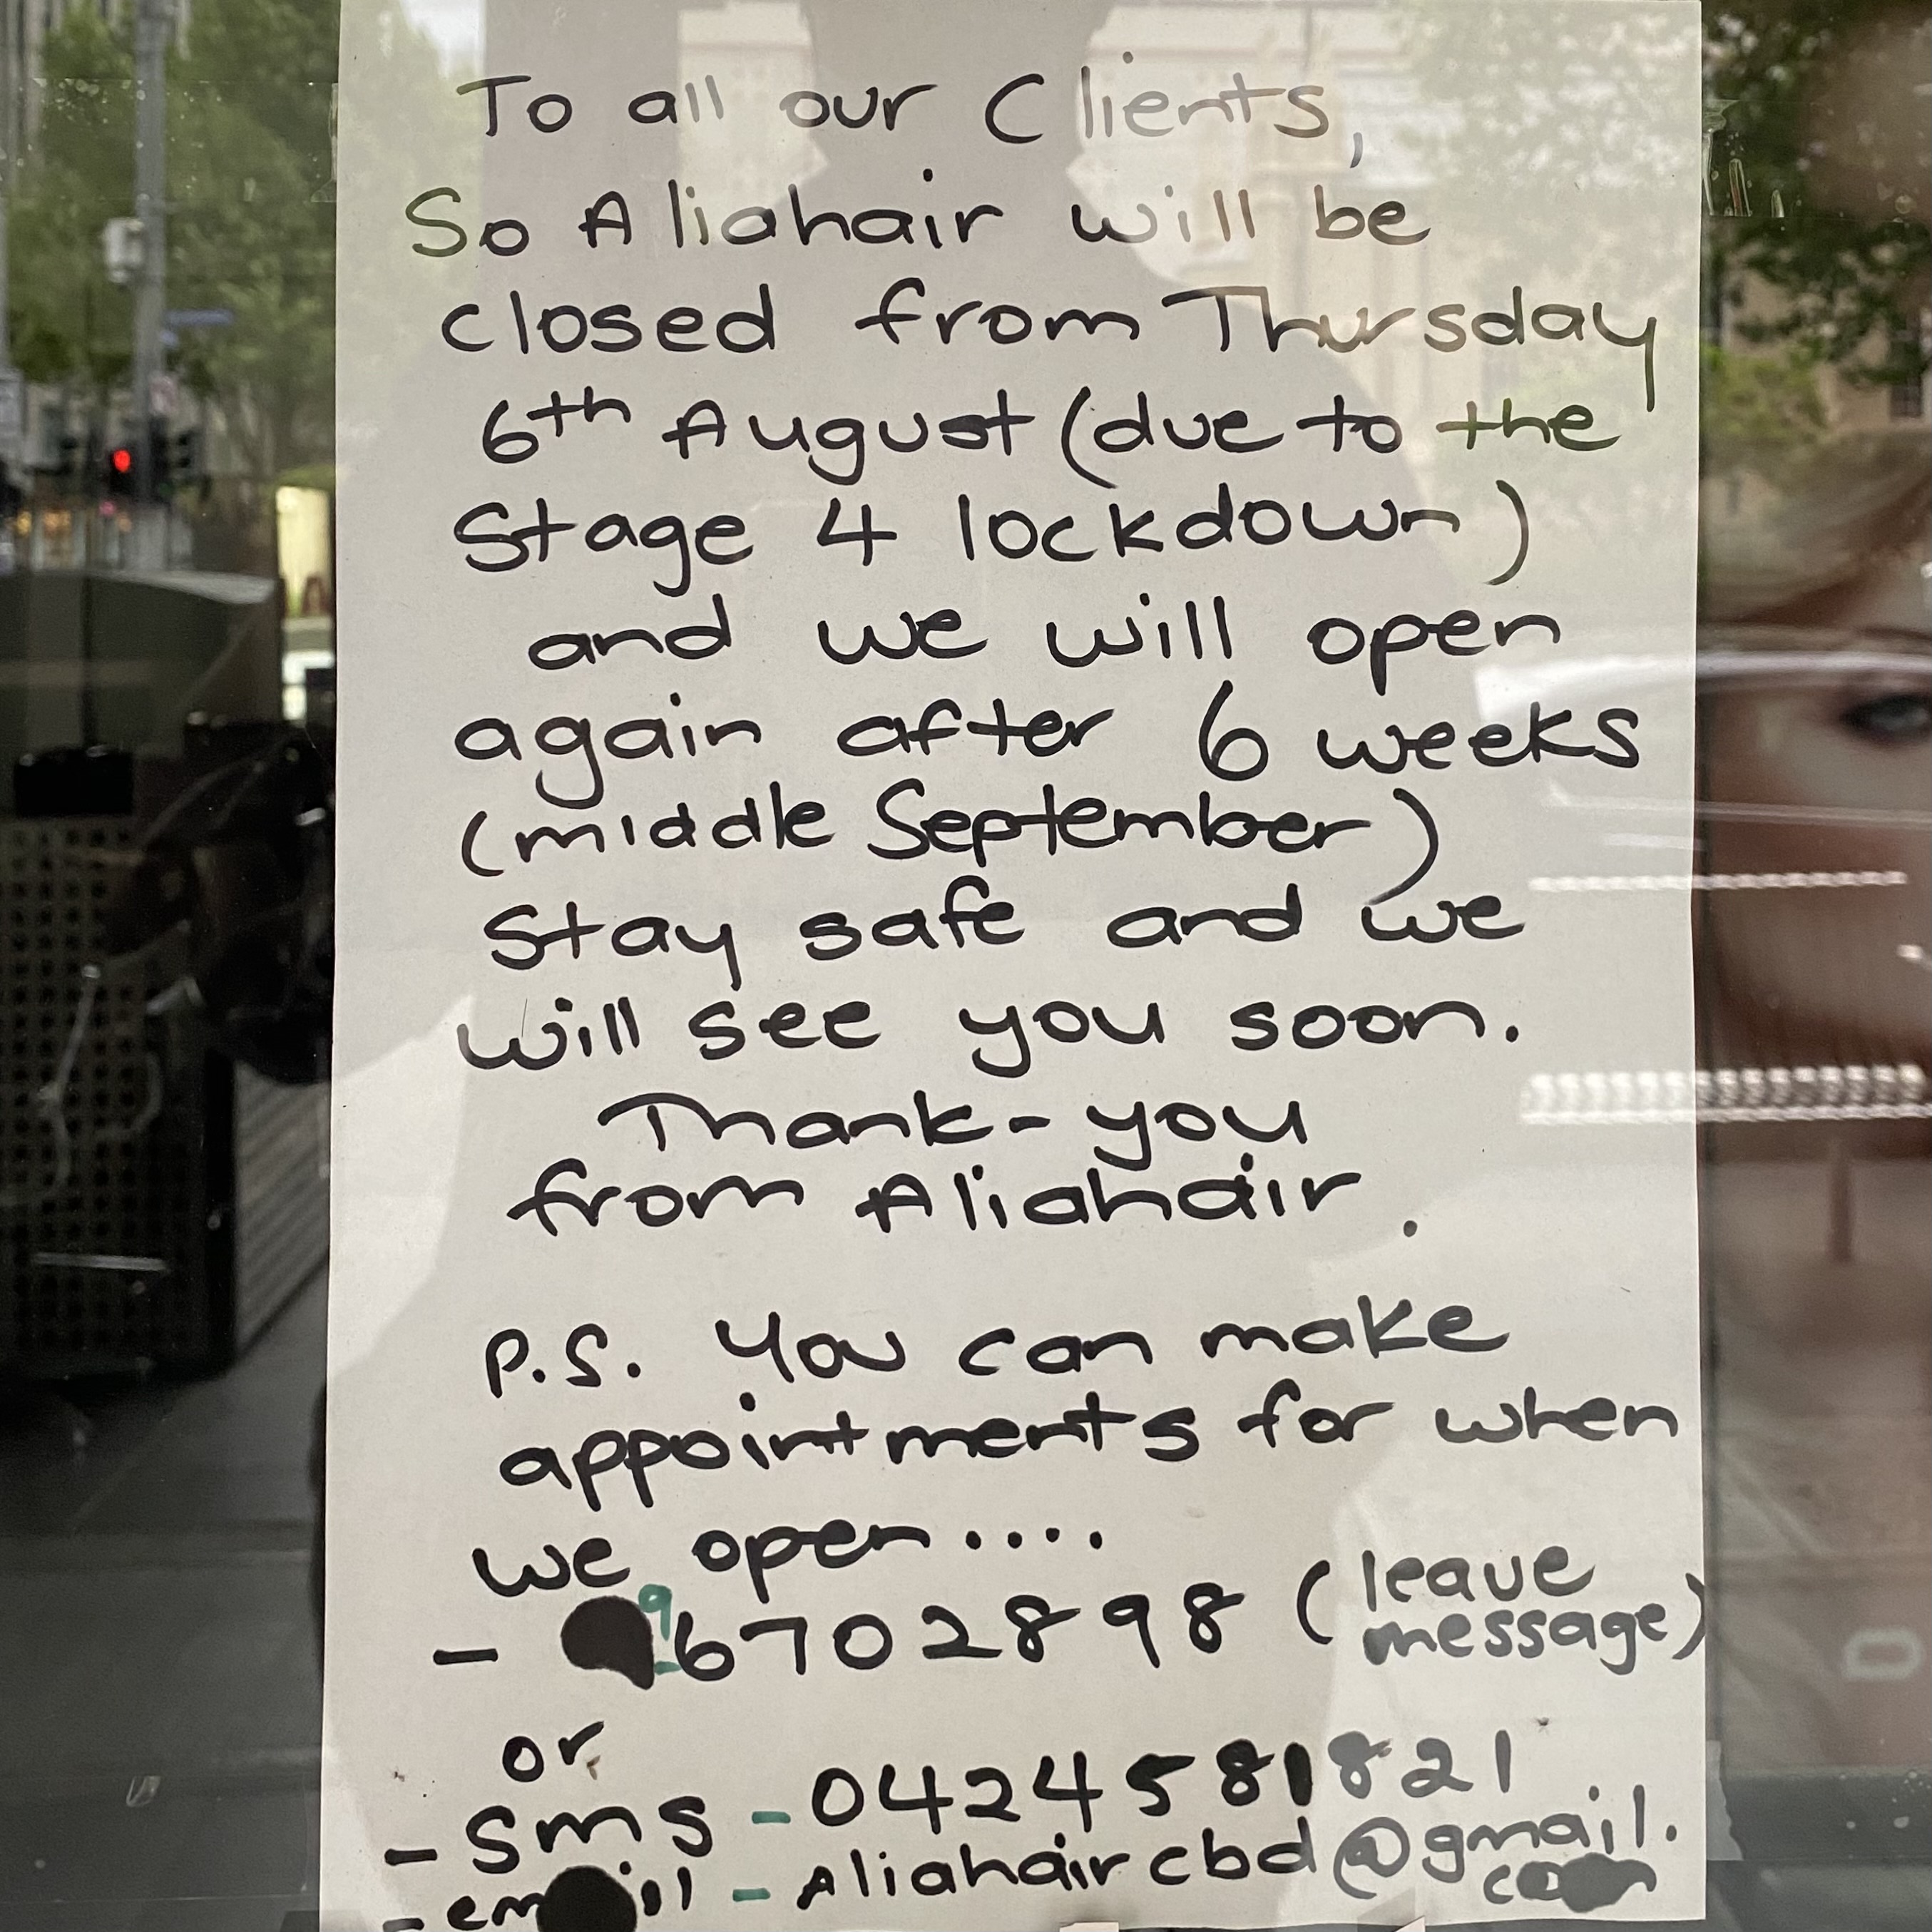 To all our Clients,
So Aliahair will be
closed from Thursday
6th August (due to the
Stage 4 lockdown)
and we will open
again after 6 weeks
(middle September)
Stay safe and we
will see you soon.
Thank-you
from Aliahair.
P.S. You can make
appointments for when
we open....
- 96702898 (leave message)
or
- Sms - 0424581821
- email - Aliahaircbd@gmail.
com